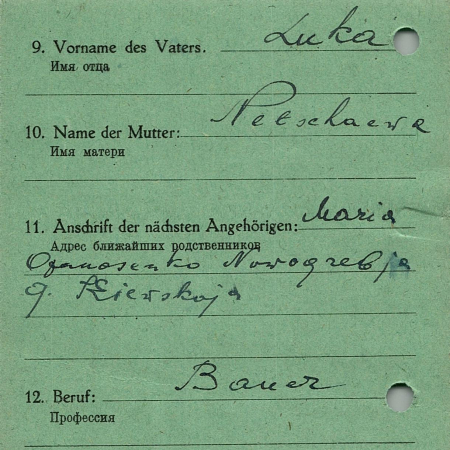 9. Vorname des Vaters. Luka
Имя отца
Netschaewa
10. Name der Mutter:
Имя матери
11. Anschrift der nächsten Angehörigen: Maria
Адрес ближайших родственников
Nowogrebja
g. Kiewskoja
12. Beruf: Bauer
Профессия